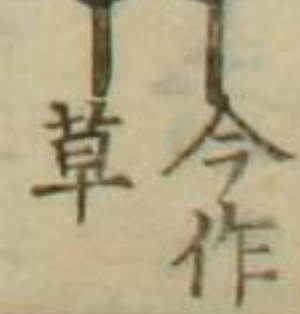 今作
草